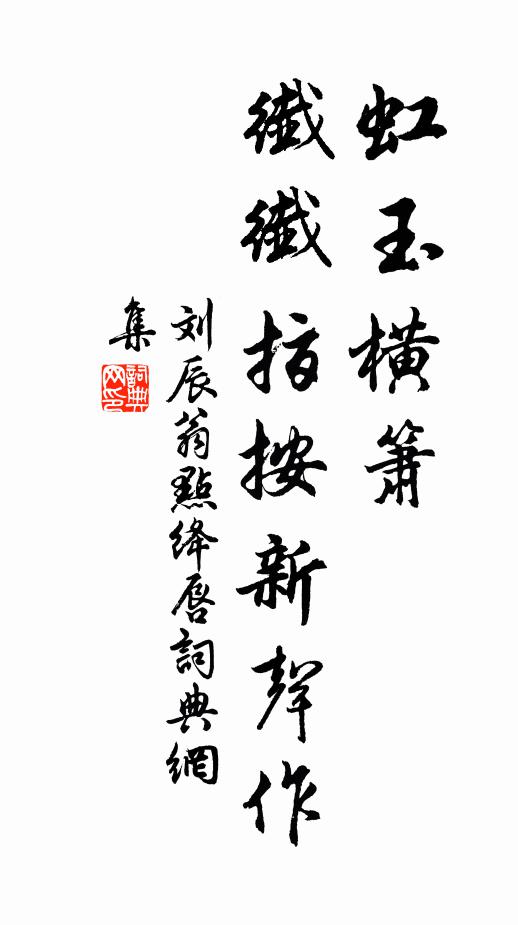 虹玉橫簫
纖纖指按新聲作
刘辰翁點绛唇詞典網
集
詞典
网印